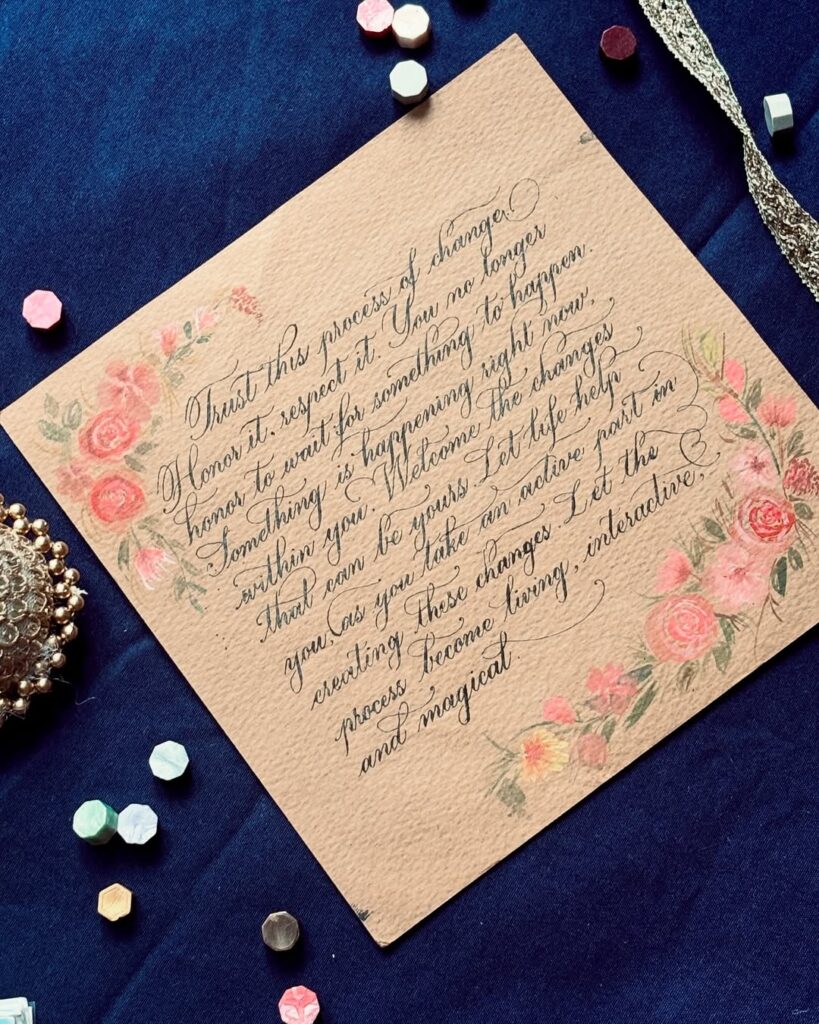 Trust this process of change.
Honor it, respect it. You no longer
honor to wait for something to happen.
Something is happening right now,
within you. Welcome the changes
that can be yours. Let life help
you, as you take an active part in
creating these changes. Let the
process become living, interactive,
and magical.